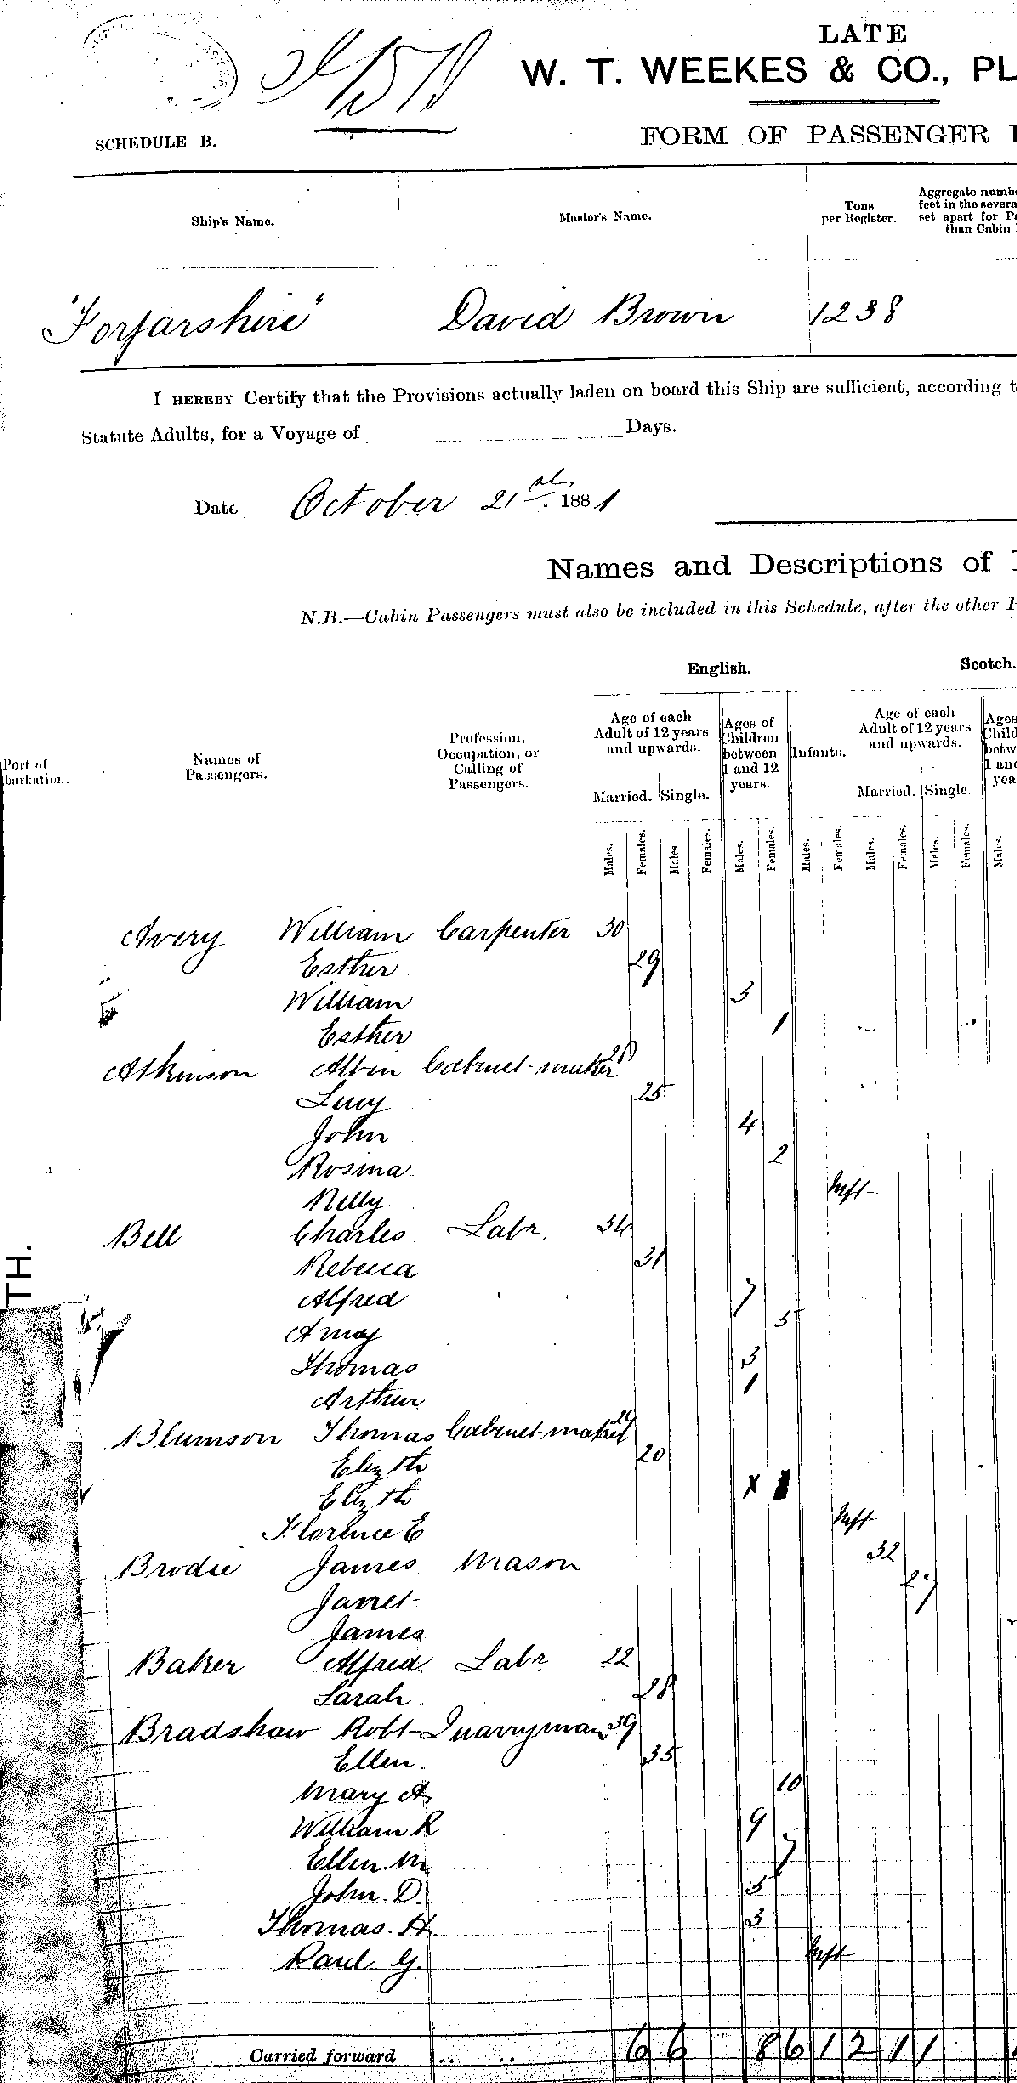 LATE
W. T. WEEKES & CO., PL
SCHEDULE B.
FORM OF PASSENGER
Ship's Name.
Master's Name.
Tons per Register.
Aggregate numbe
feet in the severa
set apart for Pa
than Cabin
"Forfarshire" David Brown 1238
I HEREBY Certify that the Provisions actually laden on board this Ship are sufficient, according t
Statute Adults, for a Voyage of Days.
Date October 21st. 1881
Names and Descriptions of
N.B.—Cabin Passengers must also be included in this Schedule, after the other
English. Scotch.
Port of
barkation.
Names of
Passengers.
Profession,
Occupation, or
Calling of
Passengers.
Age of each
Adult of 12 years
and upwards.
Ages of
Children
between
1 and 12
years.
Infants.
Age of each
Adult of 12 years
and upwards.
Ages
Child
betw
1 and
yea
Married. Single. Married. Single.
Males. Females. Males Females. Males. Females. Males. Females. Males. Females. Males. Females. Males.
Avery William Carpenter 30
Esther 29
William 3
Esther 1
Atkinson Albin Cabinet-maker
Lucy 25
John 4
Rosina 2
Nelly Inft
Bell Charles Labr. 34
Rebecca 31
Alfred 7
Amy 5
Thomas 3
Arthur 1
Blumson Thomas Cabinet-maker
Elizth 20
Elizth X
Florence E Inft
Brodie James Mason 32
Janet 27
James
Baker Alfred Labr 22
Sarah 28
Bradshaw Robt Quarryman 39
Ellen. 35
Mary A. 10
William R 9
Ellen. M. 7
John. D. 5
Thomas. H. 3
Paul. G. Inft
Carried forward 6 6 8 6 1 2 1 1
TH.